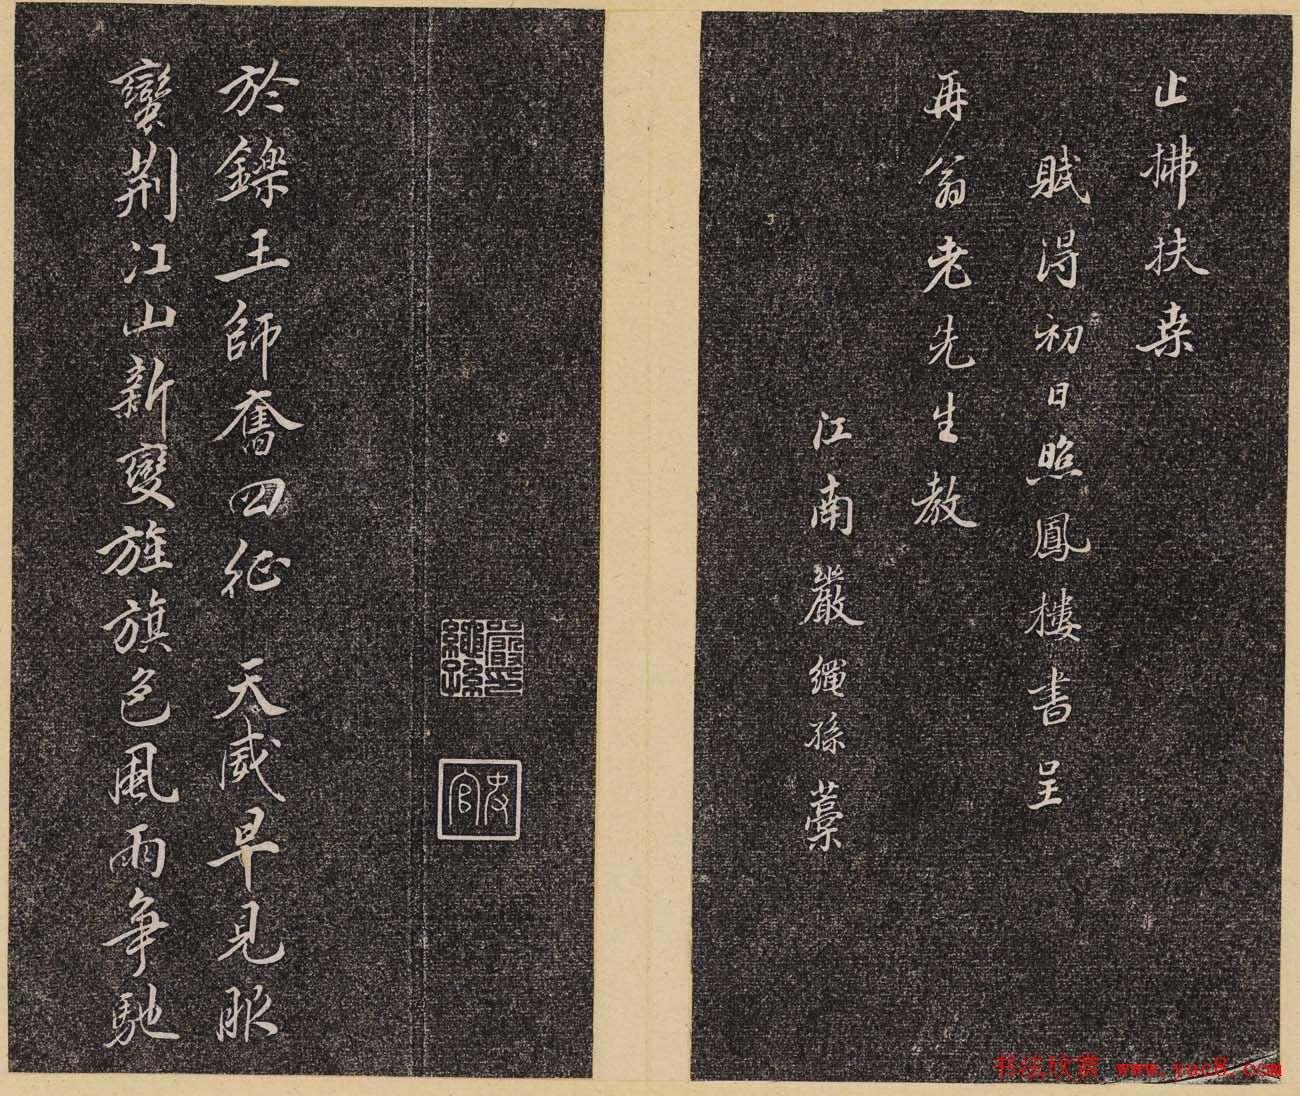 止拂扶桒
賦得初日照鳳樓書呈
再翁老先生教
江南嚴繩孫藁
嚴繩孫印
史官
於鑠王師奮四征 天威早見服
蠻荆江山新變旌旗色風雨爭馳
书法欣赏 www.yac8.com